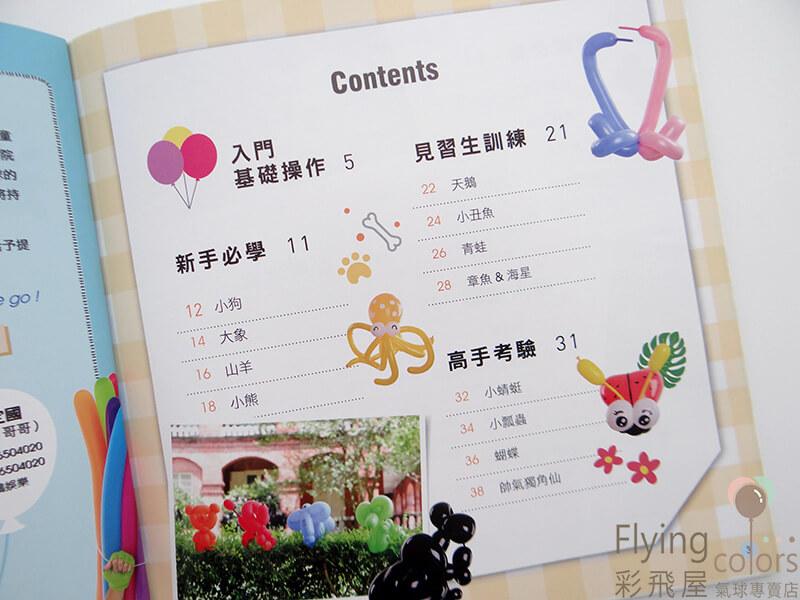 童
院
求的
將持
子提
e go !
定國
哥哥)
6504020
6504020
娛樂
Contents
入門
基礎操作 5
新手必學 11
12 小狗
14 大象
16 山羊
18 小熊
見習生訓練 21
22 天鵝
24 小丑魚
26 青蛙
28 章魚 & 海星
高手考驗 31
32 小蜻蜓
34 小瓢蟲
36 蝴蝶
38 帥氣獨角仙
Flying
colors
彩飛屋 氣球專賣店